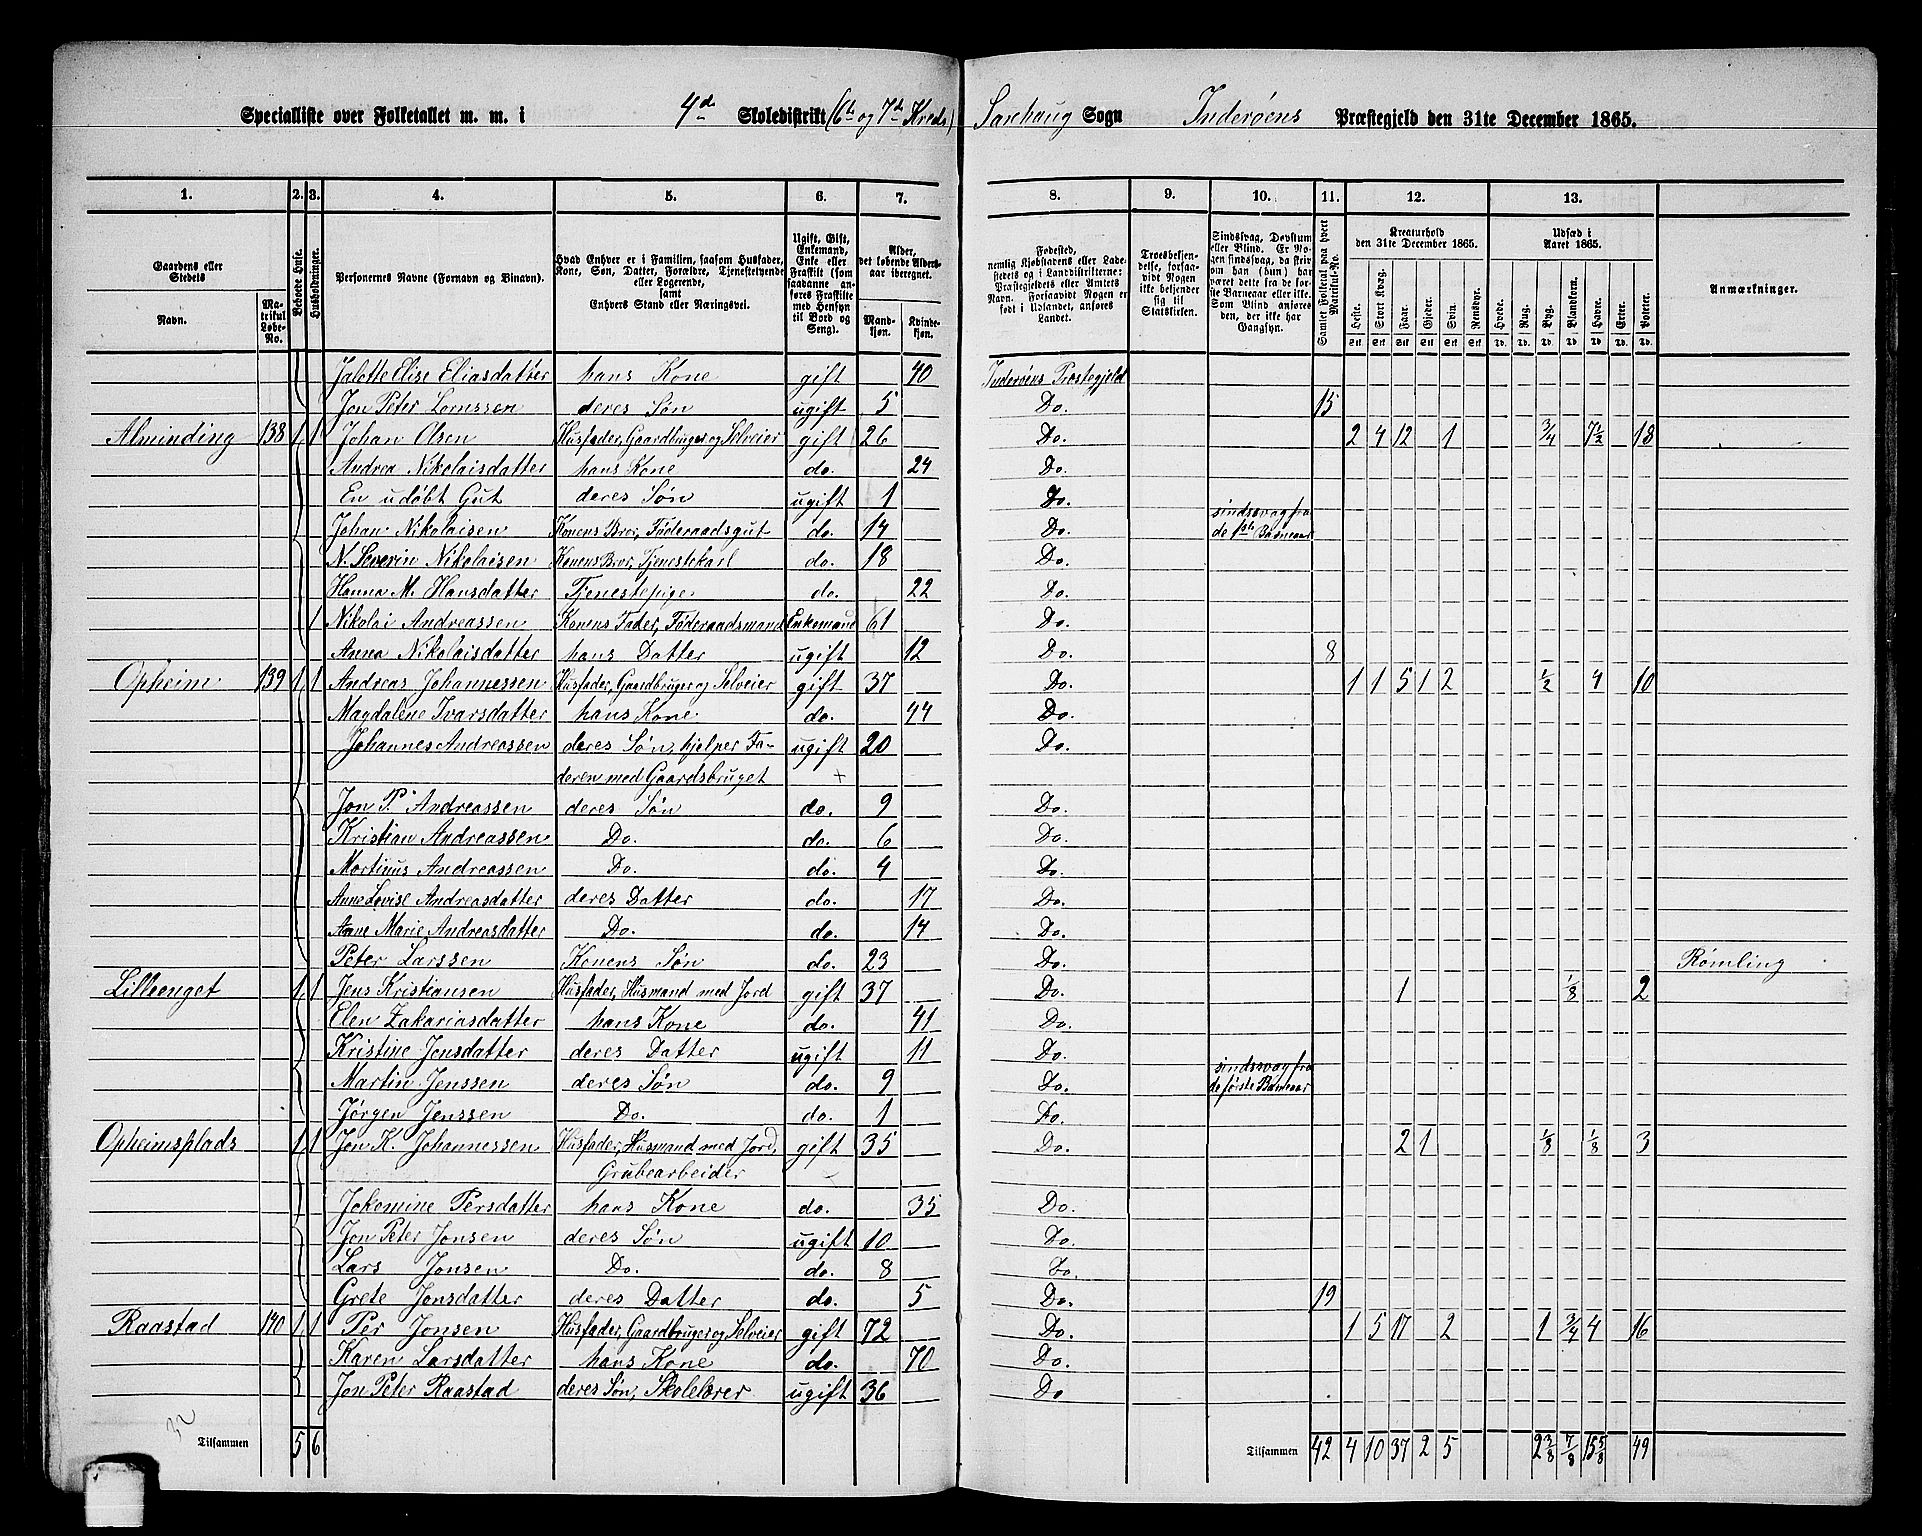 Specialliste over Folketallet m. m. i 4de Skoledistrikt (6te og 7de Kreds) Saxhaug Sogn Inderøens Præstegjeld den 31te December 1865.
1. 2. 3. 4. 5. 6. 7. 8. 9. 10. 11. 12. 13.
Gaardens eller Stedets
Navn.
Matrikul Løbe-No.
Beboede Huse.
Husholdninger.
Personernes Navne (Fornavn og Binavn).
Hvad Enhver er i Familien, saasom Husfader, Kone, Søn, Datter, Forældre, Tjenestetyende eller Logerende, samt Enhvers Stand eller Næringsvei.
Ugift, Gift, Enkemand, Enke eller Fraskilt (som saadanne anføres Fraskilte med Hensyn til Bord og Seng).
Alder, det løbende Alders-aar iberegnet.
Mandkjøn.
Kvindekjøn.
Fødested, nemlig Kjøbstadens eller Ladestedets og i Landdistrikterne: Præstegjeldets eller Amtets Navn. Forsaavidt Nogen er født i Udlandet, anføres Landet.
Troesbekjendelse, forsaavidt Nogen ikke bekjender sig til Statskirken.
Sindssvag, Døvstum eller Blind. Er Nogen sindssvag, da skrives om han (hun) har været dette fra de første Barneaar eller ikke. Som Blind anføres den, der ikke har Gangsyn.
Samlet Folketal paa hvert Matrikul-No.
Kreaturhold den 31te December 1865.
Heste. Stort Kvæg. Faar. Gjeder. Svin. Rensdyr.
Udsæd i Aaret 1865.
Hvede. Rug. Byg. Blandkorn. Havre. Erter. Poteter.
Anmærkninger.
Jalotte Elise Eliasdatter hans Kone gift 40 Inderøens Præstegjeld
Jon Peter Lornssen deres Søn ugift 5 Do. 15
Alminding 138 1 1 Johan Olsen Husfader, Gaardbruger og Selveier gift 26 Do. 2 4 12 1 3/4 7 1/2 18
Andrea Nikolaisdatter hans Kone do. 24 Do.
En udøbt Gut deres Søn ugift 1 Do.
Johan Nikolaisen Konens Bror, Føderaadsgut do. 14 Do. sindssvag fra de 1ste Barneaar
N. Severin Nikolaisen Konens Bror, Tjenestekarl do. 18 Do.
Hanna M. Hansdatter Tjenestepige do. 22 Do.
1 Nikolai Andreassen Konens Fader, Føderaadsmand Enkemand 61 Do.
Anna Nikolaisdatter hans Datter ugift 12 Do. 8
Opheim 139 1 1 Andreas Johannessen Husfader, Gaardbruger og Selveier gift 37 Do. 1 1 5 1 2 1/2 4 10
Magdalene Ivarsdatter hans Kone do. 44 Do.
Johannes Andreassen deres Søn, hjelper Fa- ugift 20 Do.
deren med Gaardsbruget
Jon P. Andreassen deres Søn do. 9 Do.
Kristian Andreassen Do. do. 6 Do.
Martinus Andreassen Do. do. 4 Do.
Anne Lovise Andreasdatter deres Datter do. 17 Do.
Anne Marie Andreasdatter Do. do. 14 Do.
Peter Larssen Konens Søn do. 23 Do. Rømling
Lilleenget 1 1 Jens Kristiansen Husfader, Husmand med Jord gift 37 Do. 1 1/8 2
Elen Zakariasdatter hans Kone do. 41 Do.
Kristine Jensdatter deres Datter ugift 11 Do.
Martin Jenssen deres Søn do. 9 Do. sindssvag fra de første Barneaar
Jørgen Jenssen Do. do. 1 Do.
Opheimsplads 1 1 Jon K. Johannessen Husfader, Husmand med Jord, gift 35 Do. 2 1 1/8 1/8 3
Grubearbeider
Jokomine Persdatter hans Kone do. 35 Do.
Jon Peter Jonsen deres Søn ugift 10 Do.
Lars Jonsen Do. do. 8 Do.
Grete Jonsdatter deres Datter do. 5 Do. 19
Raastad 140 1 1 Per Jonsen Husfader, Gaardbruger og Selveier gift 72 Do. 1 5 17 2 1 3/4 4 16
Karen Larsdatter hans Kone do. 70 Do.
Jon Peter Raastad deres Søn, Skolelærer ugift 36 Do
32
Tilsammen 5 6 Tilsammen 42 4 10 37 2 5 2 3/8 7/8 15 5/8 49